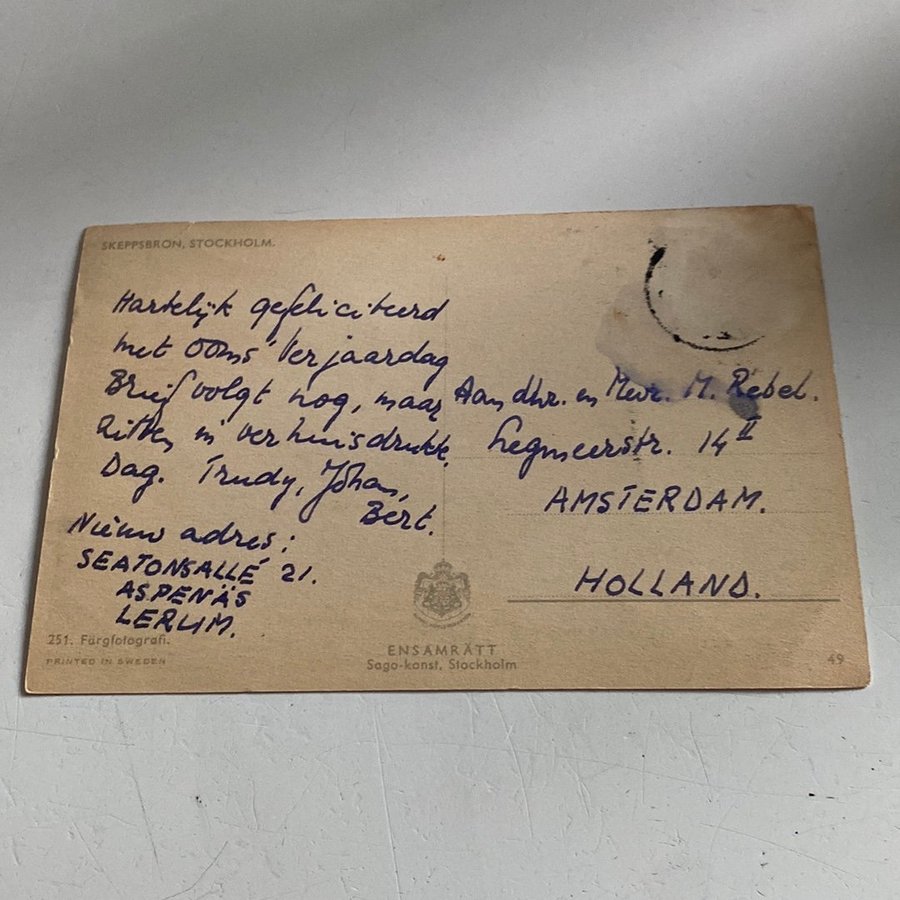 SKEPPSBRON, STOCKHOLM.
Hartelijk gefeliciteerd
met Ooms' verjaardag
Brief volgt nog, maar
zitten in verhuisdrukte.
Dag. Trudy, Johan,
Bert.
Nieuw adres:
SEATONSALLÉ 21.
ASPENÄS
LERUM.
251. Färgfotografi.
PRINTED IN SWEDEN
ENSAMRÄTT
Sago-konst, Stockholm
Aan dhr. en Mevr. M. Rebel.
Legmeerstr. 14 II
AMSTERDAM.
HOLLAND.
49